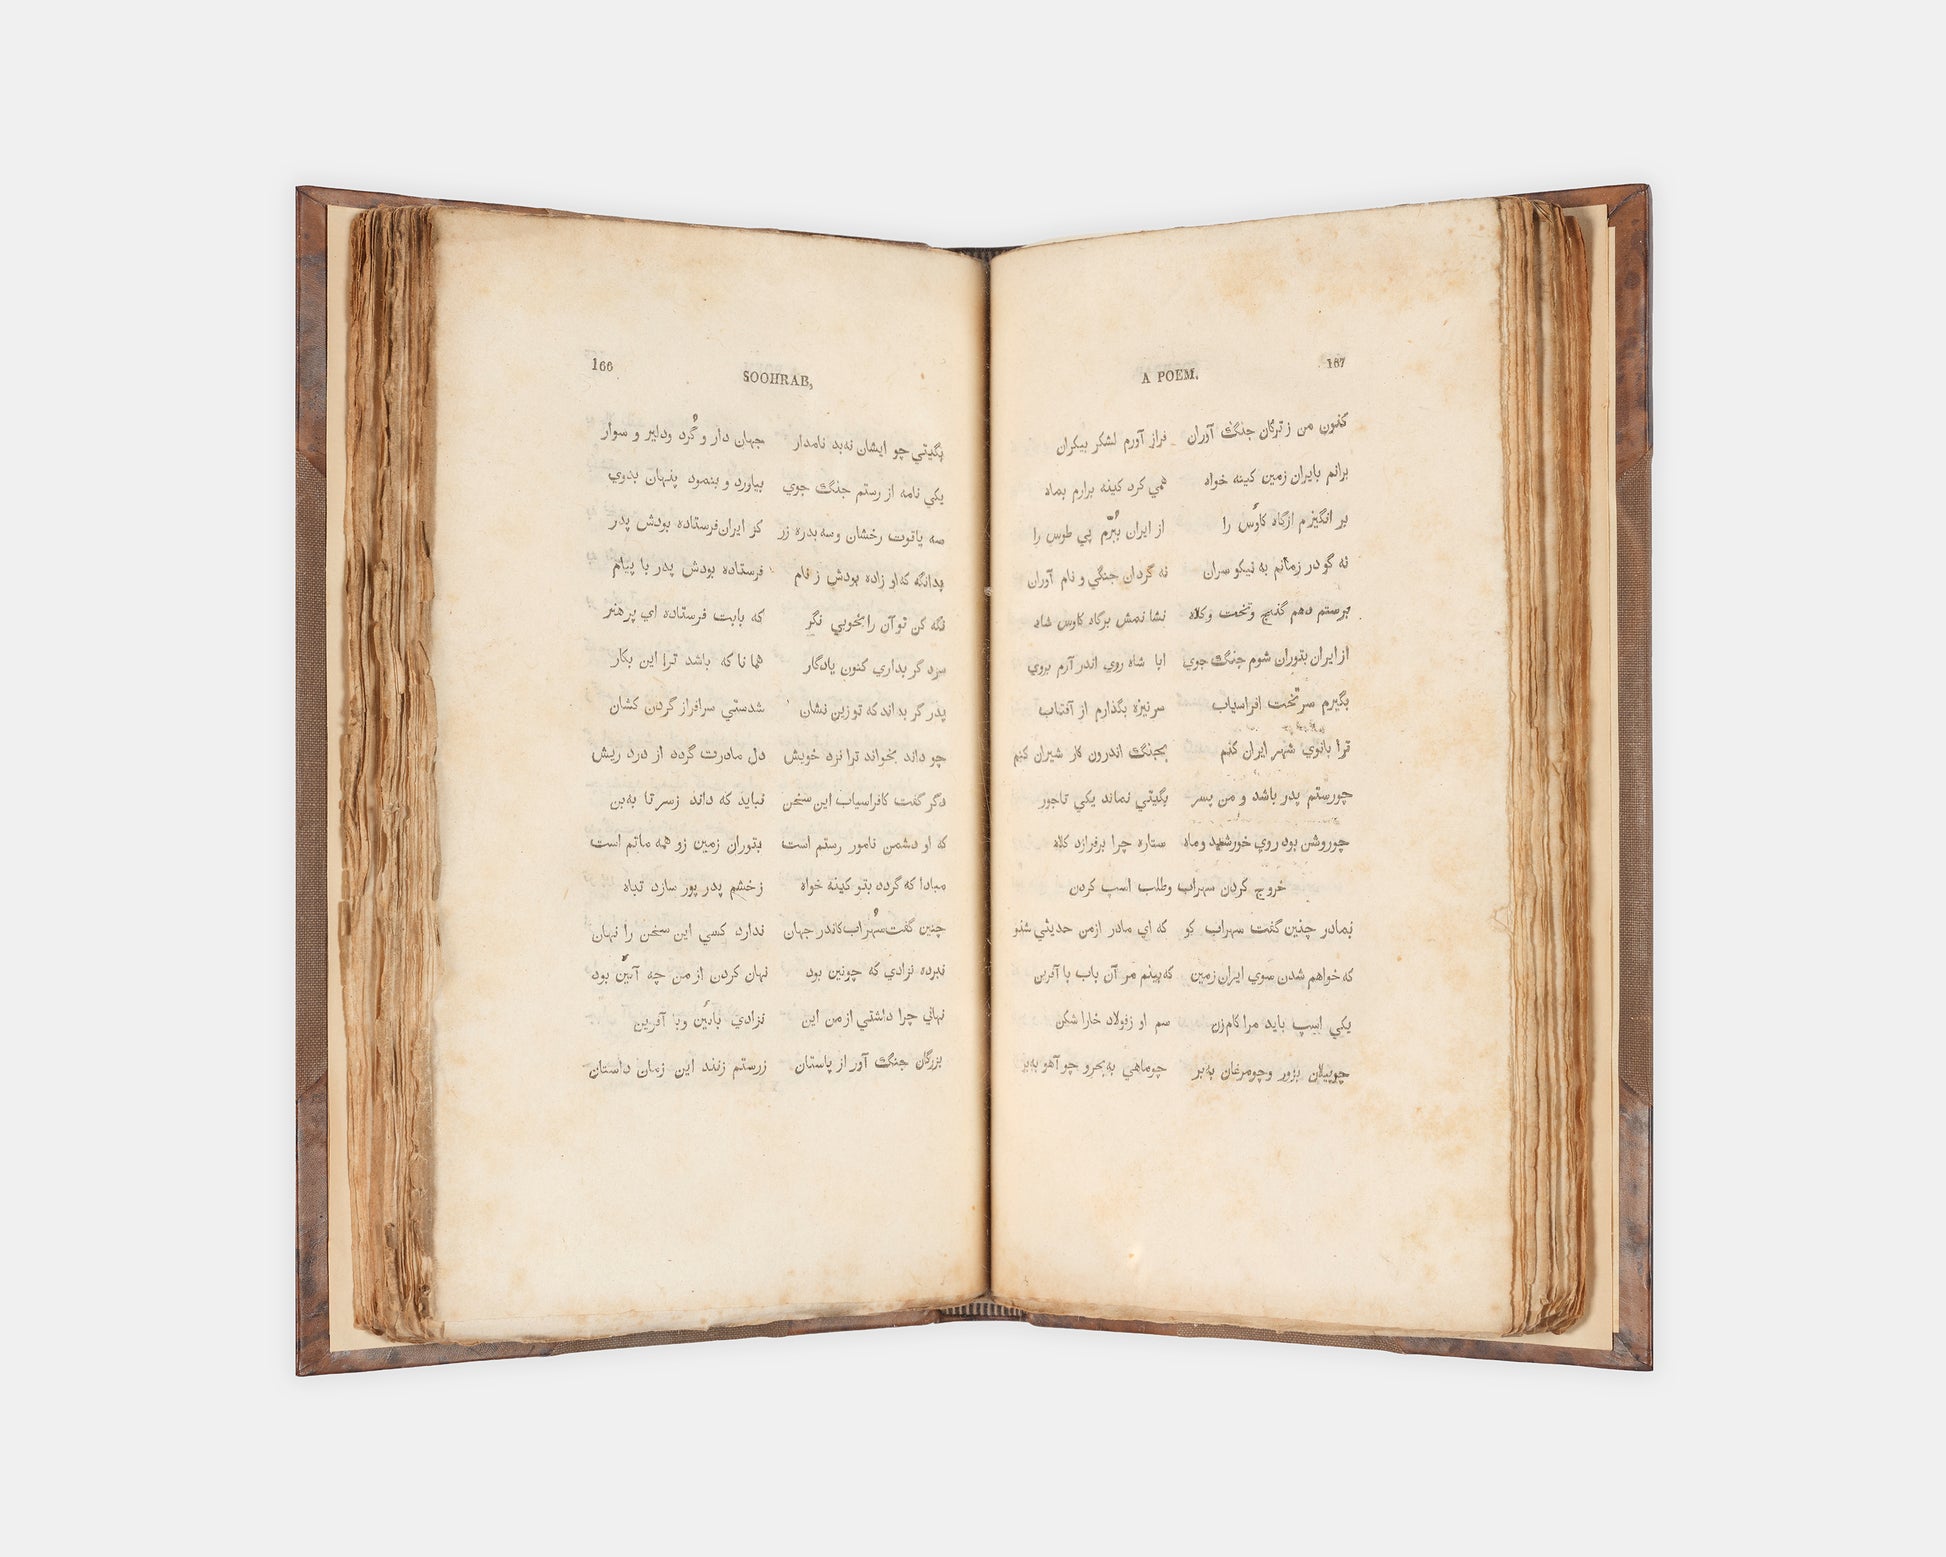 166
SOOHRAB,
بگيتي چو ايشان نه‌بد نامدار جهان دار و گُرد ودلير و سوار
يكي نامه از رستم جنگ جوي بياورد و بنمود پنهان بدوي
سه ياقوت رخشان وسه بدره زر كز ايران فرستاده بودش پدر
بدانگه كه‌او زاده بودش ز نام فرستاده بودش پدر با پيام
نگه كن توآن را بخوبي نگر كه بابت فرستاده اي پر هنر
سزد گر بداري كنون يادگار همانا كه باشد ترا اين بكار
پدر گر بداند كه تو زين نشان شدستي سرافراز گردن كشان
چو داند بخواند ترا نزد خويش دل مادرت گردد از درد ريش
دگر گفت كافراسياب اين سخن نبايد كه داند زسر تا به‌بن
كه او دشمن نامور رستم است بتوران زمين زو همه ماتم است
مبادا كه گردد بتو كينه خواه زخشم پدر پور سازد تباه
چنين گفت سُهراب كاندر جهان ندارد كسي اين سخن را نهان
نبرده نژادي كه چونين بود نهان كردن از من چه آئين بود
نهاني چرا داشتي ازمن اين نژادي بائين وبا آفرين
بزرگان جنگ آور از باستان زرستم زنند اين زمان داستان
A POEM.
167
كنون من ز تركان جنگ آوران فراز آورم لشكر بيكران
برانم بايران زمين كينه خواه همي گرد كينه برارم بماه
بر انگيزم ازگاه كاؤس را از ايران ببُرّم پي طوس را
نه گودرز مانم به نيكو سران نه گردان جنگي و نام آوران
برستم دهم گنج وتخت وكلاه نشانمش برگاه كاوس شاه
از ايران بتوران شوم جنگ جوي ابا شاه روي اندر آرم بروي
بگيرم سرتخت افراسياب سر نيزه بگذارم از آفتاب
ترا بانوي شهر ايران كنم بجنگ اندرون كار شيران كنم
چورستم پدر باشد و من پسر بگيتي نماند يكي تاجور
چوروشن بود روي خورشيد وماه ستاره چرا برفرازد كلاه
خروج كردن سهراب وطلب اسپ كردن
بمادر چنين گفت سهراب گو كه اي مادر ازمن حديثي شنو
كه خواهم شدن سوي ايران زمين كه بينم مر آن باب با آفرين
يكي اسپ بايد مرا كام‌زن سم او زفولاد خارا شكن
چوپيلان بزور وچومرغان به‌پر چوماهي به‌بحرو چو آهو به‌بر